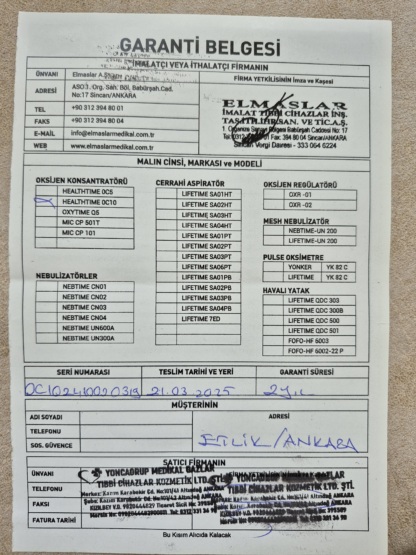 GARANTİ BELGESİ
İMALATÇI VEYA İTHALATÇI FİRMANIN
ÜNVANI
Elmaslar A.Ş
FİRMA YETKİLİSİNİN İmza ve Kaşesi
ADRESİ
ASO 1. Org. San. Böl, Babürşah.Cad.
No:17 Sincan/ANKARA
TEL
+90 312 394 80 01
FAKS
+90 312 394 80 04
E-MAIL
info@elmaslarmedikal.com.tr
WEB
www.elmaslarmedikal.com.tr
ELMASLAR
İMALAT TIBBİ CİHAZLAR İNŞ.
SAN. VE TİC.A.Ş.
1. Organize Sanayi Bölgesi Babürşah Caddesi No: 17
Sincan Vergi Dairesi - 333 064 6224
MALIN CİNSİ, MARKASI ve MODELİ
OKSİJEN KONSANTRATÖRÜ
HEALTHTIME OC5
HEALTHTIME OC10
OXYTIME Q5
MIC CP 501T
MIC CP 101
NEBULİZATÖRLER
NEBTIME CN01
NEBTIME CN02
NEBTIME CN03
NEBTIME CN04
NEBTIME UN600A
NEBTIME UN300A
CERRAHİ ASPİRATÖR
LIFETIME SA01HT
LIFETIME SA02HT
LIFETIME SA03HT
LIFETIME SA04HT
LIFETIME SA01PT
LIFETIME SA02PT
LIFETIME SA03PT
LIFETIME SA06PT
LIFETIME SA01PB
LIFETIME SA02PB
LIFETIME SA03PB
LIFETIME SA04PB
LIFETIME 7ED
OKSİJEN REGÜLATÖRÜ
OXR -01
OXR -02
MESH NEBULİZATÖR
NEBTIME-UN 200
LIFETIME-UN 200
PULSE OKSİMETRE
YONKER YK 82 C
LIFETIME YK 82 C
HAVALI YATAK
LIFETIME QDC 303
LIFETIME QDC 300B
LIFETIME QDC 500
LIFETIME QDC 501
FOFO-HF 6003
FOFO-HF 6002-22 P
SERİ NUMARASI
TESLİM TARİHİ VE YERİ
GARANTİ SÜRESİ
OC102410020319
21.03.2025
2 yıl
MÜŞTERİNİN
ADI SOYADI
ADRESİ
TELEFONU
SOS. GÜVENCE
ETLİK/ANKARA
SATICI FİRMANIN
ÜNVANI
YONCADRUP MEDİKAL GAZLAR
TIBBİ CİHAZLAR KOZMETİK LTD. ŞTİ.
TELEFONU
FAKSI
FATURA TARİHİ
Bu Kısım Alıcıda Kalacak